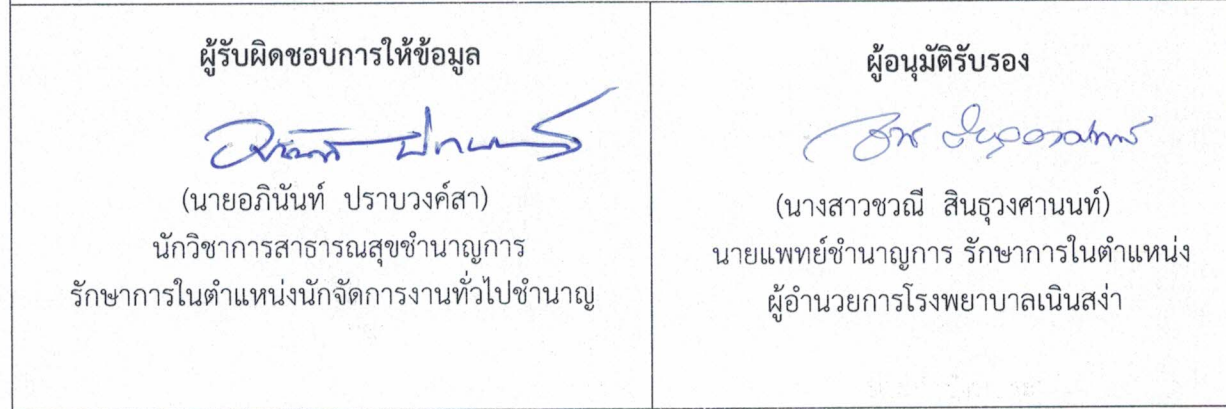 ผู้รับผิดชอบการให้ข้อมูล
(นายอภินันท์ ปราบวงค์สา)
นักวิชาการสาธารณสุขชำนาญการ
รักษาการในตำแหน่งนักจัดการงานทั่วไปชำนาญ
ผู้อนุมัติรับรอง
(นางสาวชวณี สินธุวงศานนท์)
นายแพทย์ชำนาญการ รักษาการในตำแหน่ง
ผู้อำนวยการโรงพยาบาลเนินสง่า